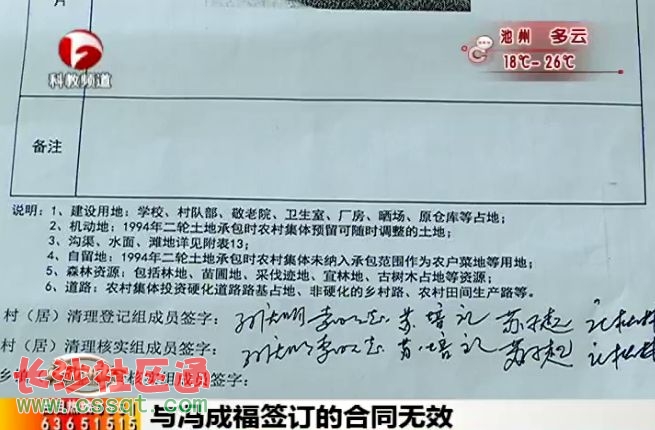 片
科教频道
池州 多云
18℃-26℃
备注
说明：1、建设用地：学校、村队部、敬老院、卫生室、厂房、晒场、原仓库等占地；
2、机动地：1994年二轮土地承包时农村集体预留可随时调整的土地；
3、沟渠、水面、滩地详见附表13；
4、自留地：1994年二轮土地承包时农村集体未纳入承包范围作为农户菜地等用地；
5、森林资源：包括林地、苗圃地、采伐迹地、宜林地、古树木占地等资源；
6、道路：农村集体投资硬化道路路基占地、非硬化的乡村路、农村田间生产路等。
村（居）清理登记组成员签字：
村（居）清理核实组成员签字：
核实组成员签字：
长沙社区通
www.cssqt.com
63651515
与冯成福签订的合同无效